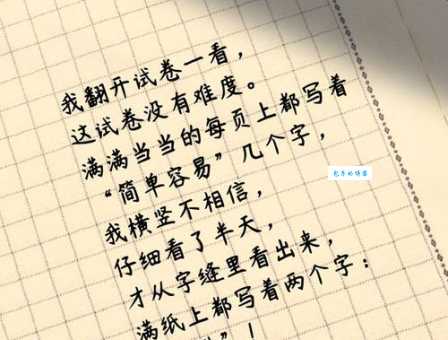 我翻开试卷一看，
这试卷没有难度。
满满当当的每页上都写着
“简单容易”几个字，
我横竖不相信，
仔细看了半天，
才从字缝里看出来，
满纸上都写着两个字：
”！